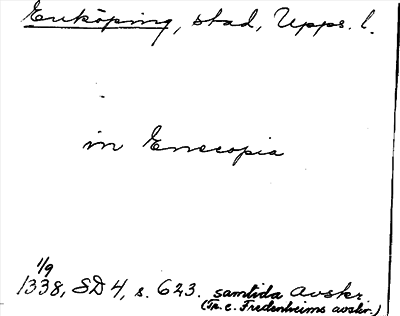 Enköping, stad, Upps. l.
in Enecopia
1/9
1338, SD 4, s. 623. samtida avskr.
(Tr. e. Fredenheims avskr.)